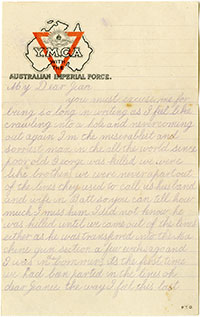 Y.M.C.A.
WITH
AUSTRALIAN IMPERIAL FORCE.
My Dear Jean
you must excuse me for
being so long in writing as I feel like
crawling into a hole and never coming
out again I'm the miserablest and
sorriest man in the all the world since
poor old George was killed we were
like brothers we were never apart out
of the lines they used to call us husband
and wife in Batt so you can tell how
much I miss him I did not know he
was killed until we came out of the lines
either as he was transferred into the Ma
chine gun section a few weeks ago and
I was in bombers its the first time
we had been parted in the lines oh
dear Janie the way I feel this last
PTO